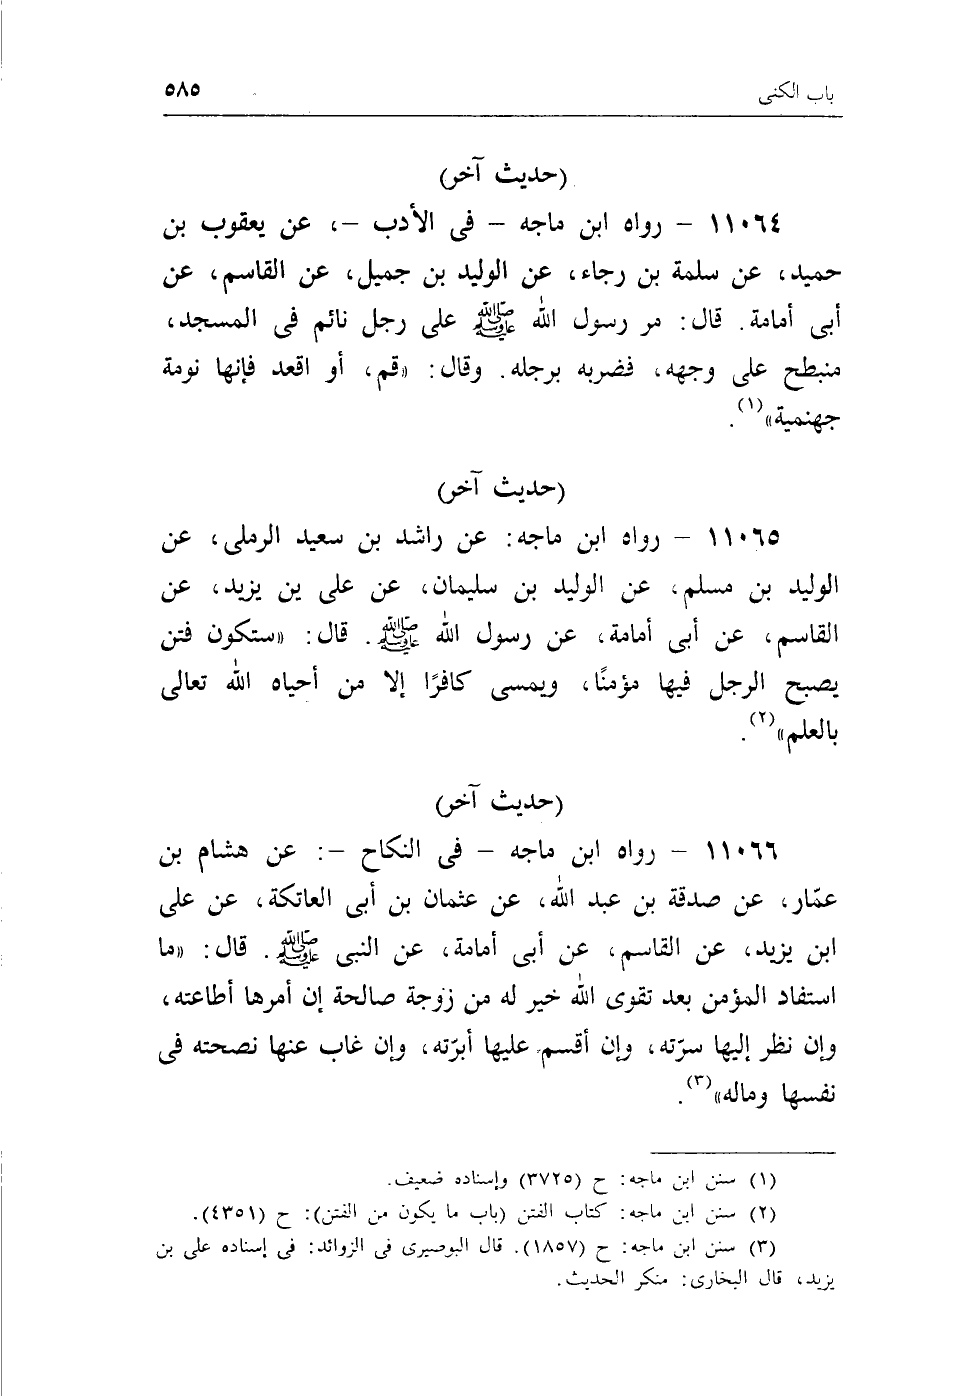 باب الكنى ٥٨٥
(حديث آخر)
١١٠٦٤ - رواه ابن ماجه - فى الأدب -، عن يعقوب بن
حميد، عن سلمة بن رجاء، عن الوليد بن جميل، عن القاسم، عن
أبى أمامة. قال: مر رسول الله ﷺ على رجل نائم فى المسجد،
منبطح على وجهه، فضربه برجله. وقال: «قم، أو اقعد فإنها نومة
جهنمية»(١).
(حديث آخر)
١١٠٦٥ - رواه ابن ماجه: عن راشد بن سعيد الرملى، عن
الوليد بن مسلم، عن الوليد بن سليمان، عن على ين يزيد، عن
القاسم، عن أبى أمامة، عن رسول الله ﷺ. قال: «ستكون فتن
يصبح الرجل فيها مؤمنًا، ويمسى كافرًا إلا من أحياه الله تعالى
بالعلم»(٢).
(حديث آخر)
١١٠٦٦ - رواه ابن ماجه - فى النكاح -: عن هشام بن
عمّار، عن صدقة بن عبد الله، عن عثمان بن أبى العاتكة، عن على
ابن يزيد، عن القاسم، عن أبى أمامة، عن النبى ﷺ. قال: «ما
استفاد المؤمن بعد تقوى الله خير له من زوجة صالحة إن أمرها أطاعته،
وإن نظر إليها سرّته، وإن أقسم عليها أبرّته، وإن غاب عنها نصحته فى
نفسها وماله»(٣).
(١) سنن ابن ماجه: ح (٣٧٢٥) وإسناده ضعيف.
(٢) سنن ابن ماجه: كتاب الفتن (باب ما يكون من الفتن): ح (٤٣٥١).
(٣) سنن ابن ماجه: ح (١٨٥٧). قال البوصيرى فى الزوائد: فى إسناده على بن
يزيد، قال البخارى: منكر الحديث.